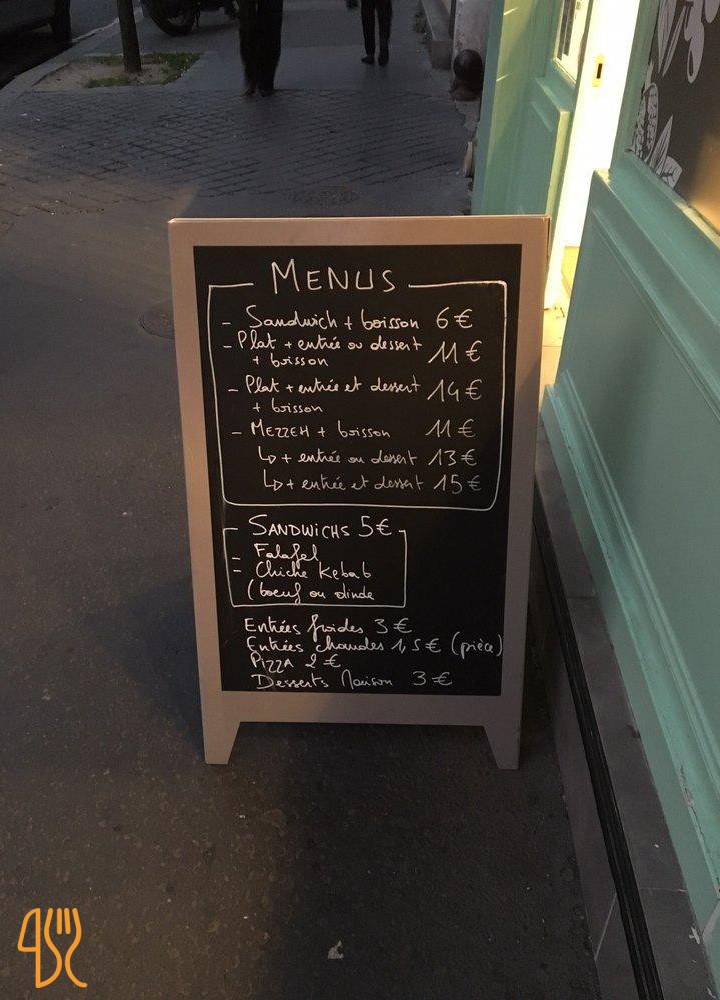 MENUS
- Sandwich + boisson 6€
- Plat + entrée ou dessert
+ boisson 11€
- Plat + entrée et dessert 14€
+ boisson
- MEZZEH + boisson 11€
↳ + entrée ou dessert 13€
↳ + entrée et dessert 15€
SANDWICHS 5€
- Falafel
- Chiche Kebab
(boeuf ou dinde
Entrées froides 3€
Entrées chaudes 1,5€ (pièce)
PIZZA 2€
Desserts Maison 3€